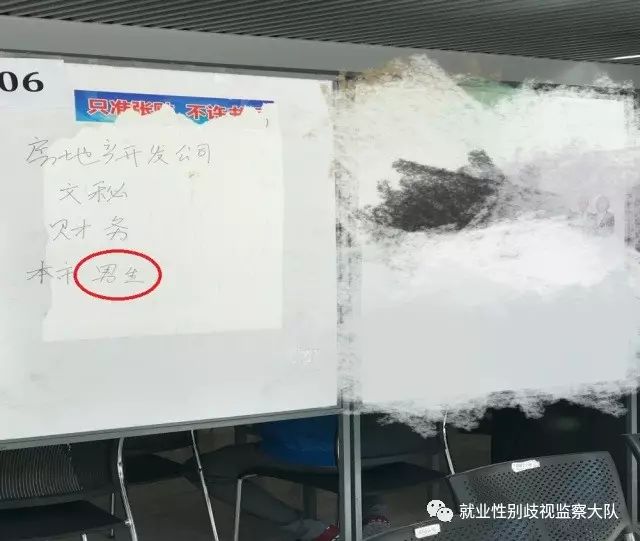 06
只准张贴 不许
房地产开发公司
文秘
财务
本市 男生
就业性别歧视监察大队